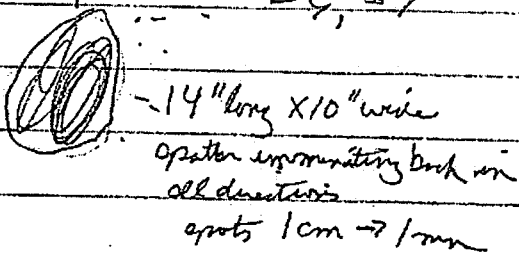 14" long X 10" wide
spatter emminating back in
all directions
spots 1cm → 1mm